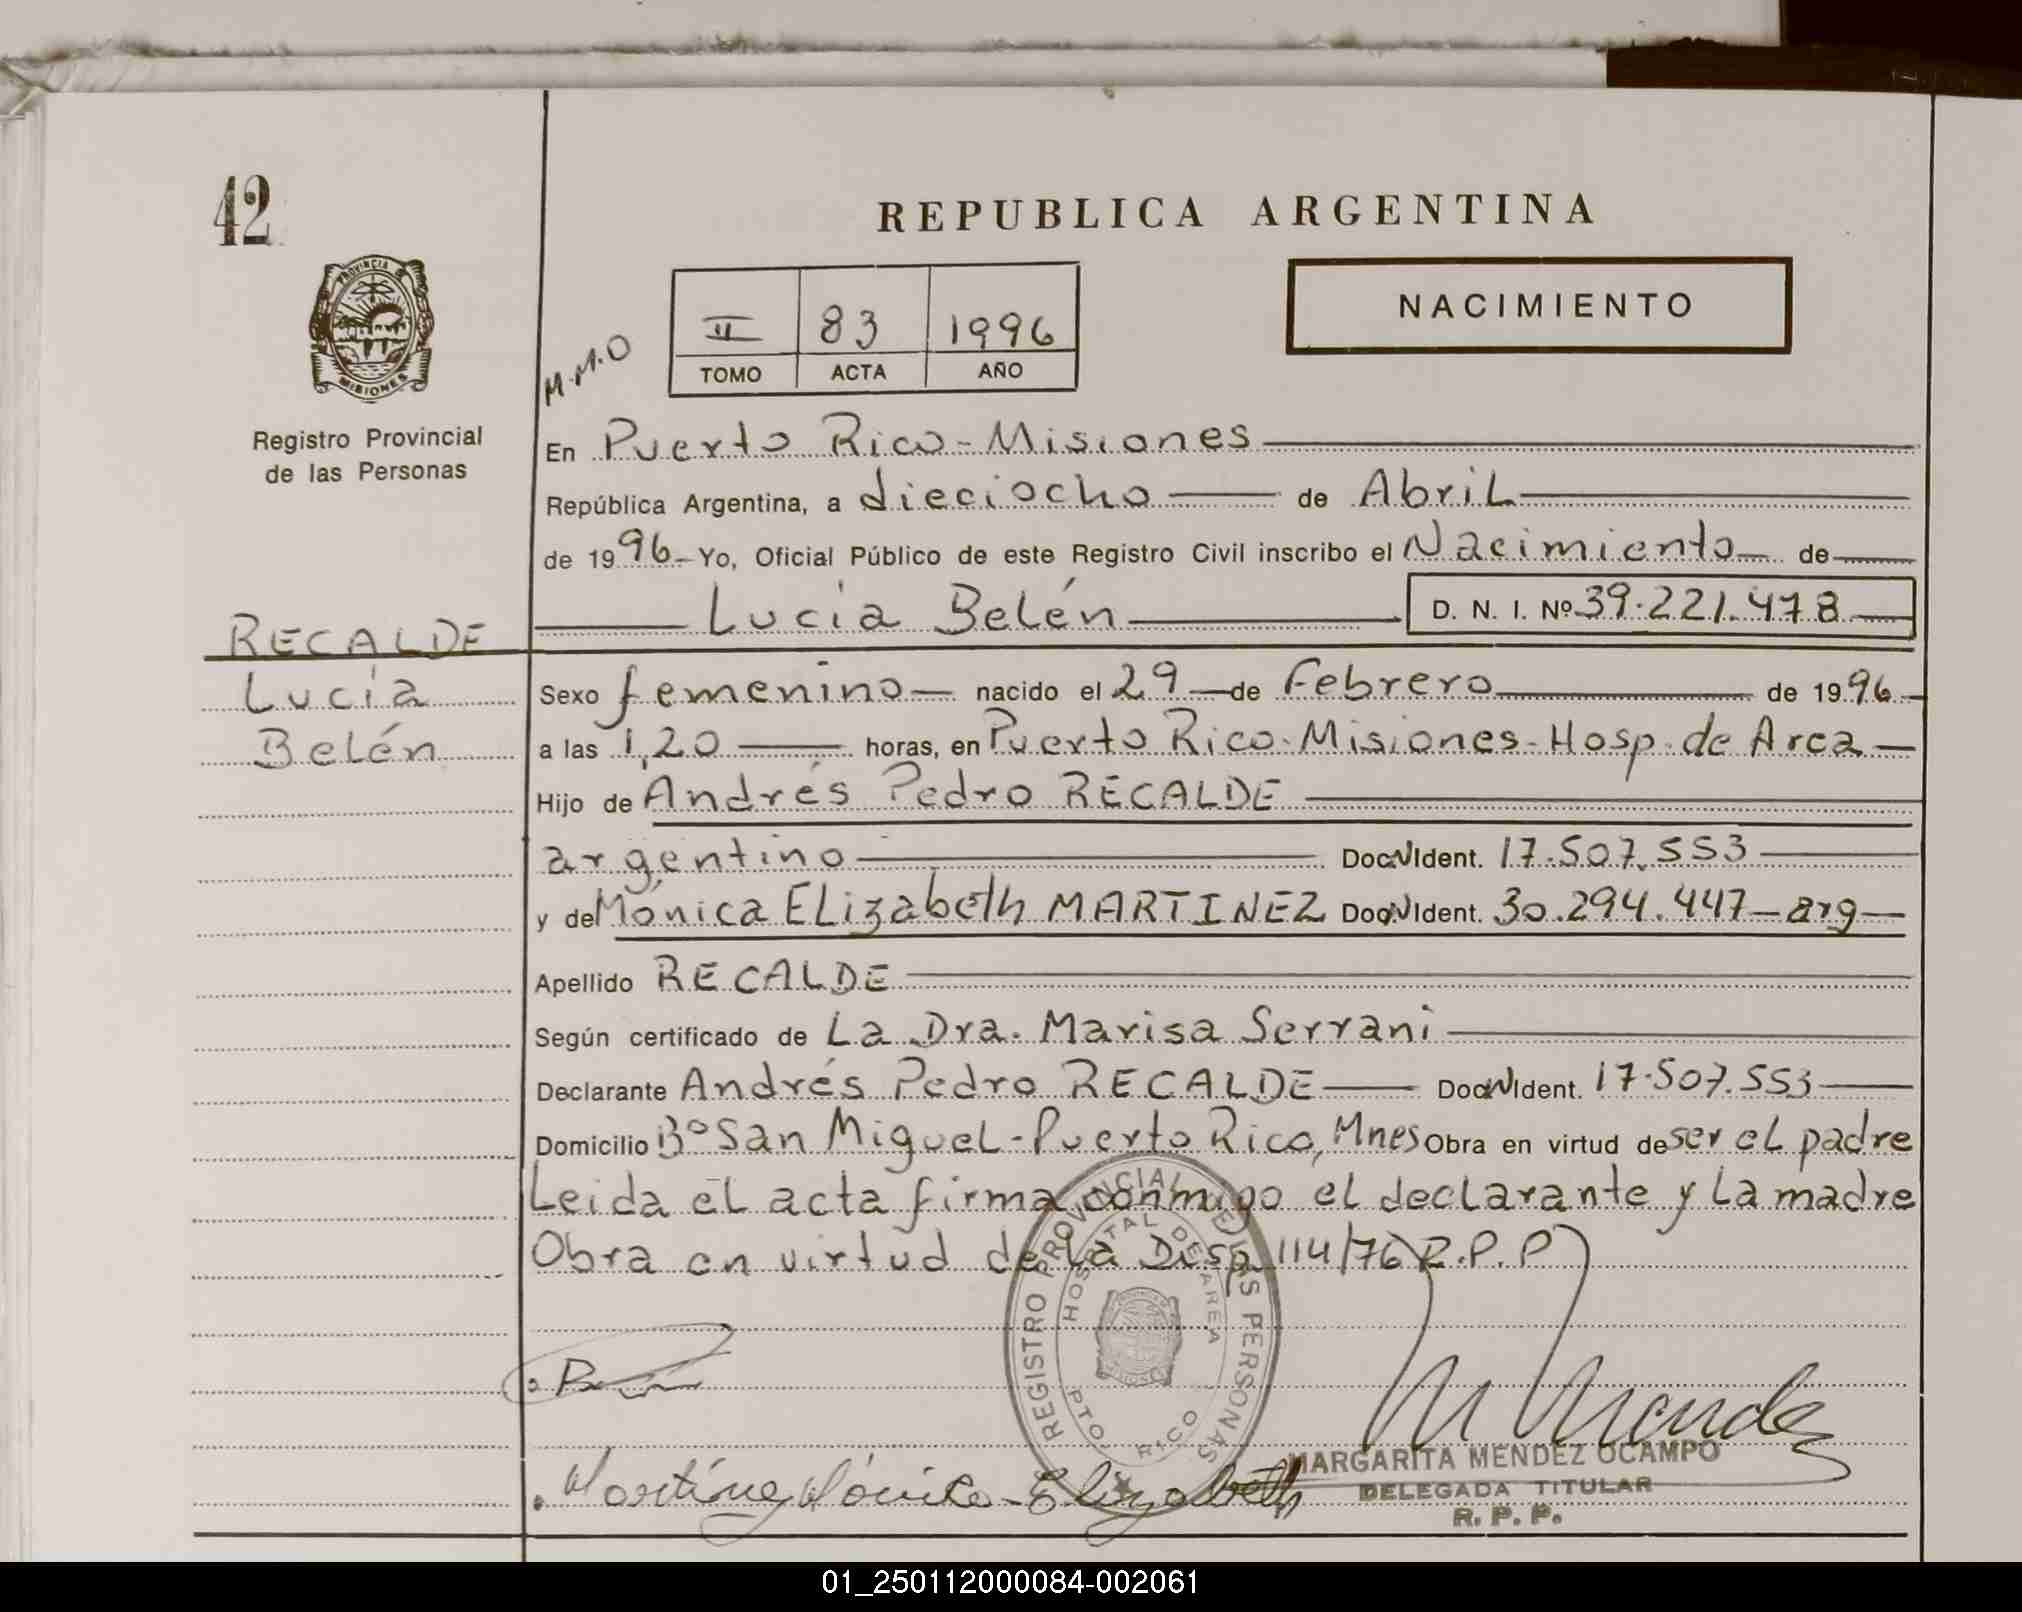 42
REPUBLICA ARGENTINA
NACIMIENTO
II 83 1996
TOMO ACTA AÑO
M.M.O
PROVINCIA DE MISIONES
Registro Provincial
de las Personas
En Puerto Rico - Misiones
República Argentina, a dieciocho de Abril
de 1996 - Yo, Oficial Público de este Registro Civil inscribo el Nacimiento de
Lucía Belén D. N. I. Nº 39.221.478
RECALDE
Lucía
Belén
Sexo femenino nacido el 29 de Febrero de 1996
a las 1,20 horas, en Puerto Rico - Misiones - Hosp. de Area
Hijo de Andrés Pedro RECALDE
argentino Doc. N Ident. 17.507.553
y de Mónica ELizabeth MARTINEZ Doc. N Ident. 30.294.447 - arg
Apellido RECALDE
Según certificado de La Dra. Marisa Serrani
Declarante Andrés Pedro RECALDE Doc. N Ident. 17.507.553
Domicilio Bº San Miguel - Puerto Rico, Mnes Obra en virtud de ser el padre
Leida el acta firma conmigo el declarante y la madre
Obra en virtud de la Disp 114/76 R.P.P
REGISTRO PROVINCIAL DE LAS PERSONAS
HOSPITAL DE AREA
PTO. RICO
Martínez Mónica Elizabeth
M Mendez
MARGARITA MENDEZ OCAMPO
DELEGADA TITULAR
R. P. P.
01_250112000084-002061